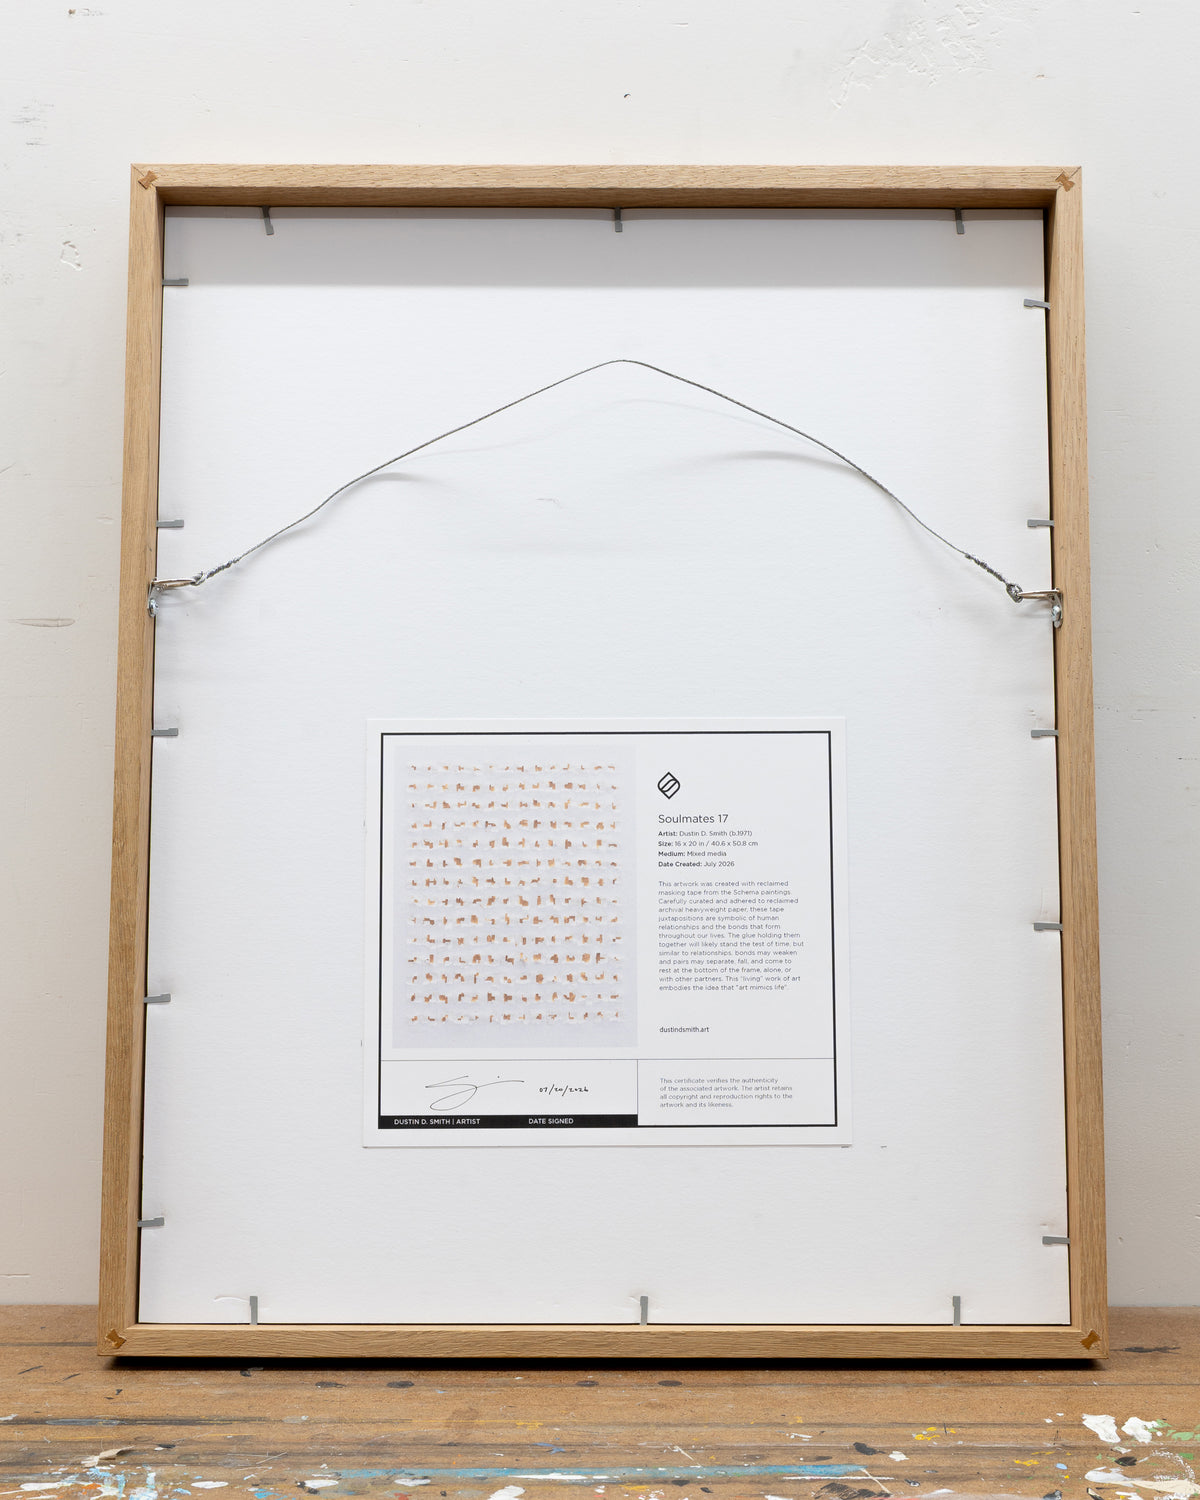 Soulmates 17
Artist: Dustin D. Smith (b.1971)
Size: 16 x 20 in / 40.6 x 50.8 cm
Medium: Mixed media
Date Created: July 2026
This artwork was created with reclaimed
masking tape from the Schema paintings.
Carefully curated and adhered to reclaimed
archival heavyweight paper, these tape
juxtapositions are symbolic of human
relationships and the bonds that form
throughout our lives. The glue holding them
together will likely stand the test of time, but
similar to relationships, bonds may weaken
and pairs may separate, fall, and come to
rest at the bottom of the frame, alone, or
with other partners. This "living" work of art
embodies the idea that "art mimics life".
dustindsmith.art
07/20/2026
DUSTIN D. SMITH | ARTIST DATE SIGNED
This certificate verifies the authenticity
of the associated artwork. The artist retains
all copyright and reproduction rights to the
artwork and its likeness.